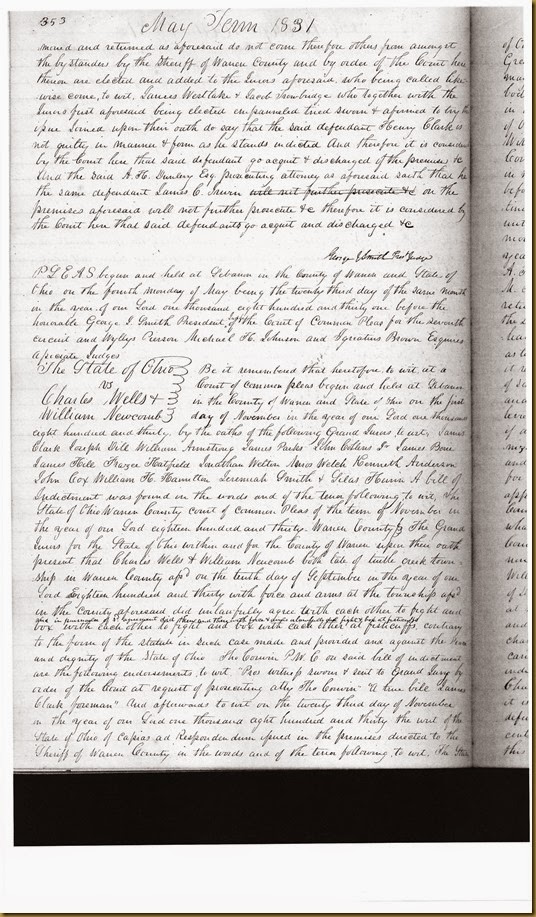 353
May Term 1831
maned and returned as aforesaid do not come therefore others from amongst
the by standers by the Sheriff of Warren County and by order of the Court here
thereon are elected and added to the Jurors aforesaid, who being called like-
wise come, to wit, James Westlake & Jacob Trowbridge who together with the
Jurors first aforesaid being elected empannelled tried sworn & afirmed to try the
issue Joined upon their oath do say that the said defendant Henry Clark is
not guilty in manner & form as he stands indicted And therefore it is considered
by the Court here that said defendant go acquit & discharged of the premises &c
And the said A. H. Dunlevy Esq. prosecuting attorney as aforesaid saith that he
the same defendant James C. Irwin will not further prosecute &c on the
premises aforesaid will not further prosecute &c therefore it is considered by
the Court here that said defendants go acquit and discharged &c
George J Smith Pres Judge
PLEAS begun and held at Lebanon in the County of Warren and State of
Ohio on the fourth monday of May being the twenty third day of the same month
in the year of our Lord one thousand eight hundred and thirty one before the
honorable George J. Smith President Judge of the Court of Common Pleas for the seventh
circuit and Wyllys Pierson Michael H. Johnson and Ignatius Brown Esquires
associate Judges
The State of Ohio
vs
Charles Wells &
William Newcomb
Be it remembered that heretofore to wit, at a
Court of common pleas begun and held at Lebanon
in the County of Warren and State of Ohio on the first
day of November in the year of our Lord one thousand
eight hundred and thirty, by the oaths of the following Grand Jurors to wit, James
Clark Joseph Hill William Armstrong James Parks John Collins Jr James Bone
James Hill Frazee Hatfield Jonathan Welton Welch Kenneth Anderson
John Cox William H. Hamilton Jeremiah Smith & Silas Hurin A bill of
Indictment was found in the words and of the tenor following to wit, The
State of Ohio Warren County court of common Pleas of the term of November in
the year of our Lord eighteen hundred and thirty Warren County ss The Grand
Jurors for the State of Ohio within and for the County of Warren upon their oath
present that Charles Wells & William Newcomb both late of turtle creek town-
ship in Warren County afsd on the tenth day of September in the year of our
Lord Eighteen hundred and thirty with force and arms at the township afsd
in the County aforesaid did unlawfully agree with each other to fight and
and in pursuance of sd agreement did then and there with force & arms unlawfully fight & box at fisticuffs
box with each other to fight and box with each other at fisticuffs, contrary
to the form of the statute in such case made and provided and against the peace
and dignity of the State of Ohio Tho Corwin P.W.C on said bill of indictment
are the following endorsements, to wit, "Pros witness sworn & sent to Grand Jury by
order of the Court at request of prosecuting atty Tho Corwin" "A true bill James
Clark foreman" And afterwards to wit on the twenty third day of November
in the year of our Lord one thousand eight hundred and thirty the writ of the
State of Ohio of capias ad Respondendum issued in the premises directed to the
Sheriff of Warren County in the words and of the tenor following, to wit, The State